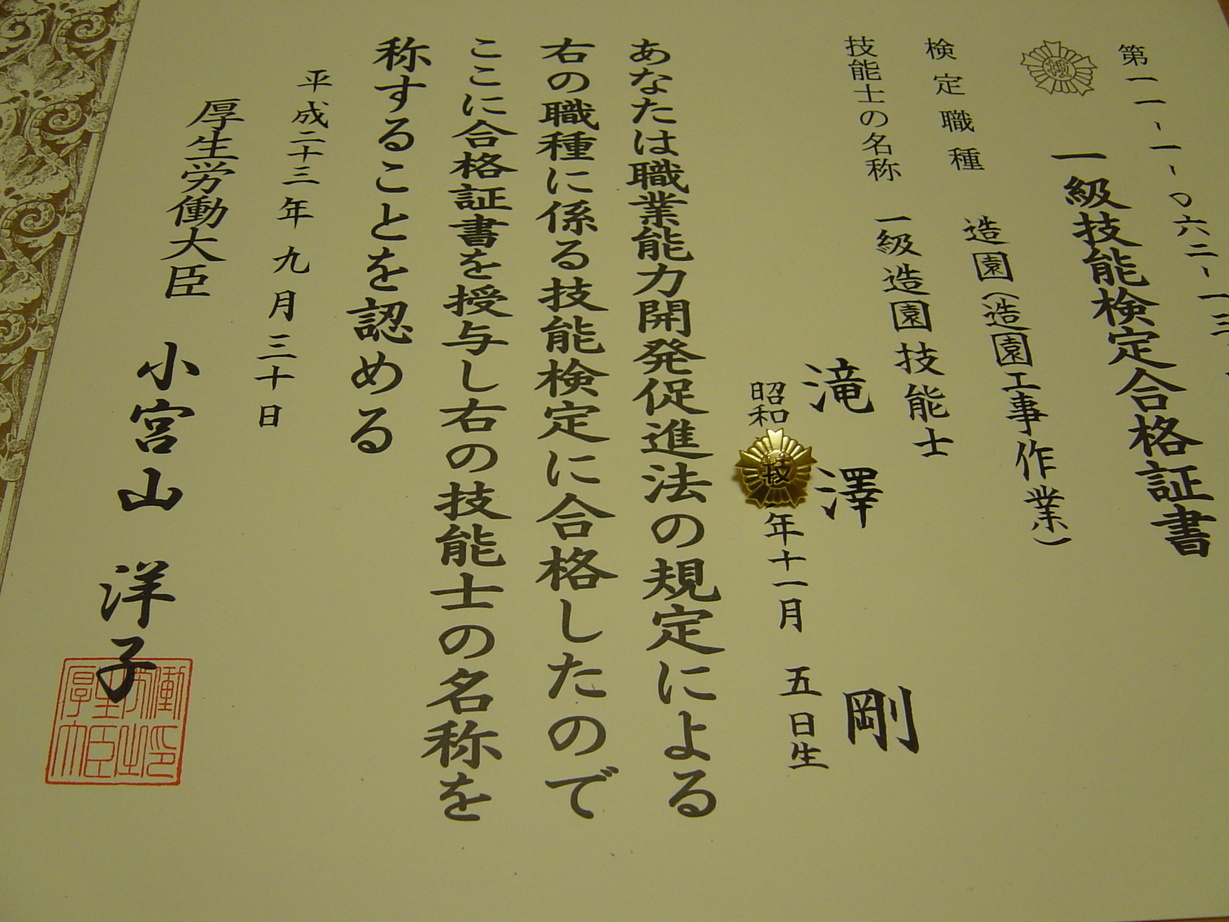 第一一-一-〇六二-一三-
一級技能検定合格証書
検定職種 造園(造園工事作業)
技能士の名称 一級造園技能士
滝澤 剛
昭和 年十一月 五日生
あなたは職業能力開発促進法の規定による
右の職種に係る技能検定に合格したので
ここに合格証書を授与し右の技能士の名称を
称することを認める
平成二十三年 九月三十日
厚生労働大臣 小宮山 洋子